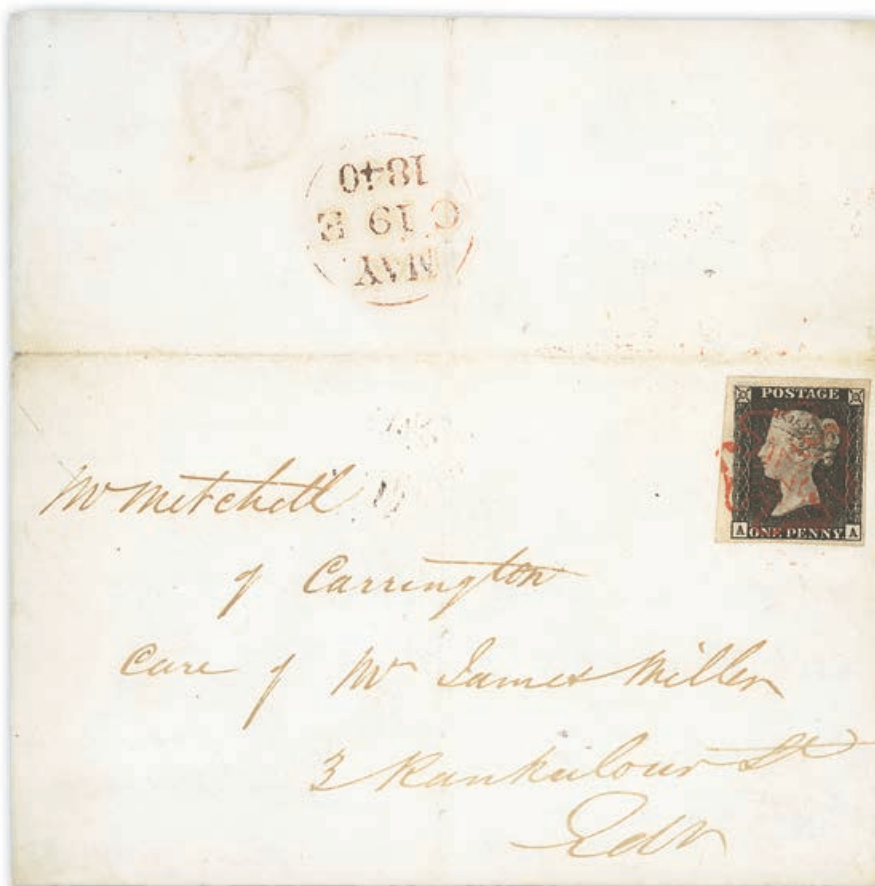 MAY
C 19 E
1840
POSTAGE
A ONE PENNY A
Mr Mitchell
of Carrington
Care of Mr James Miller
3 Rankeilour St
Edr